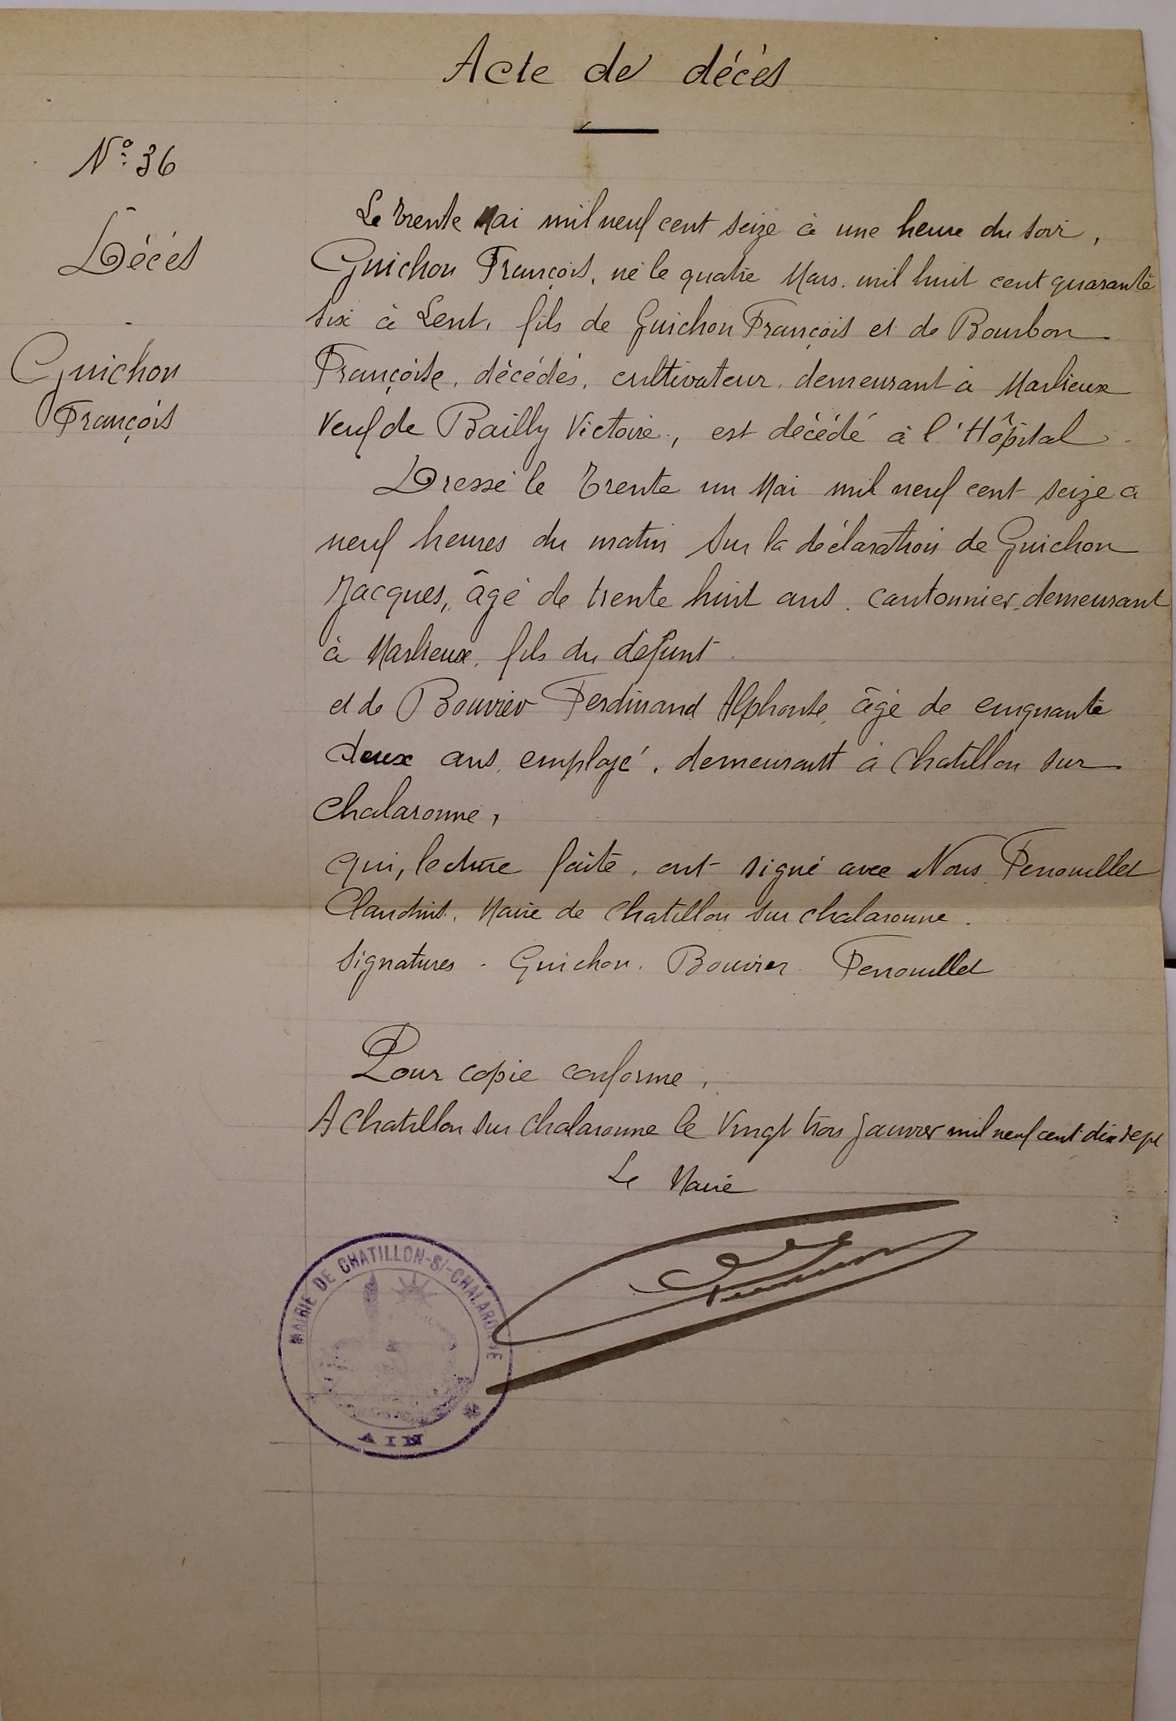 Acte de décès
N° 36
Décès
Guichon
François
Le trente Mai mil neuf cent seize à une heure du soir,
Guichon François, né le quatre Mars mil huit cent quarante
six à Lent, fils de Guichon François et de Bourbon
Françoise, décédés, cultivateur, demeurant à Marlieux
veuf de Bailly Victoire, est décédé à l'Hôpital.
Dressé le trente un Mai mil neuf cent seize à
neuf heures du matin sur la déclaration de Guichon
Jacques, âgé de trente huit ans, cantonnier, demeurant
à Marlieux, fils du défunt
et de Bouvier Ferdinand Alphonse, âgé de cinquante
deux ans, employé, demeurant à Chatillon sur
Chalaronne,
qui, lecture faite, ont signé avec Nous
Maire de Chatillon sur Chalaronne.
Signatures. Guichon. Bouvier.
Pour copie conforme,
A Chatillon sur Chalaronne le Vingt trois janvier mil neuf cent dix sept
Le Maire
MAIRIE DE CHATILLON-S/-CHALARONNE
AIN